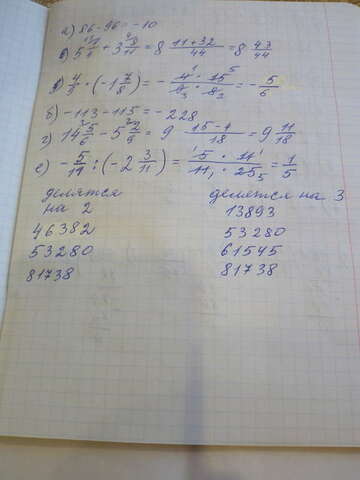 а) 86 - 96 = -10
в) 5 1/4 + 3 8/11 = 8 (11+32)/44 = 8 43/44
д) 4/9 · (-1 7/8) = - (4 · 15)/(9 · 8) = - 5/6
б) -113 - 115 = -228
г) 14 5/6 - 5 2/9 = 9 (15-4)/18 = 9 11/18
е) - 5/11 : (-2 3/11) = (5 · 11)/(11 · 25) = 1/5
делятся на 2
46382
53280
81738
делятся на 3
13893
53280
61545
81738